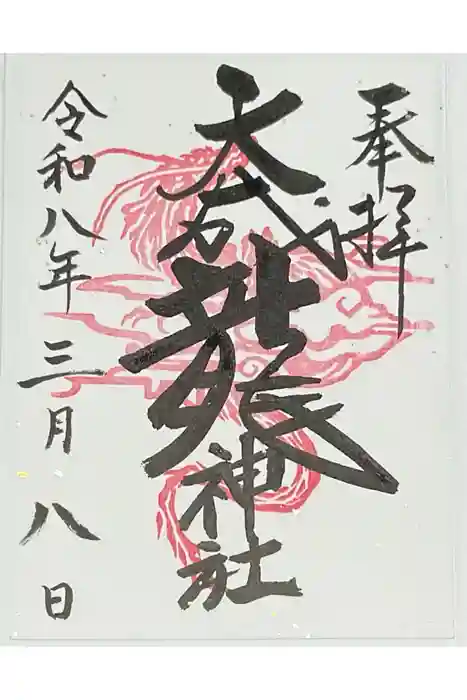 奉拝
大成龍神社
令和八年三月八日